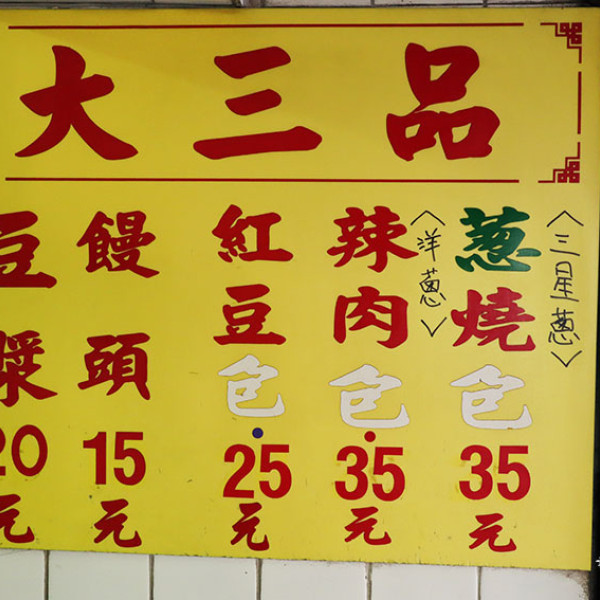 大三品
蔥燒包35元
〈三星蔥〉
辣肉包35元
〈洋蔥〉
紅豆包25元
饅頭15元
豆漿20元